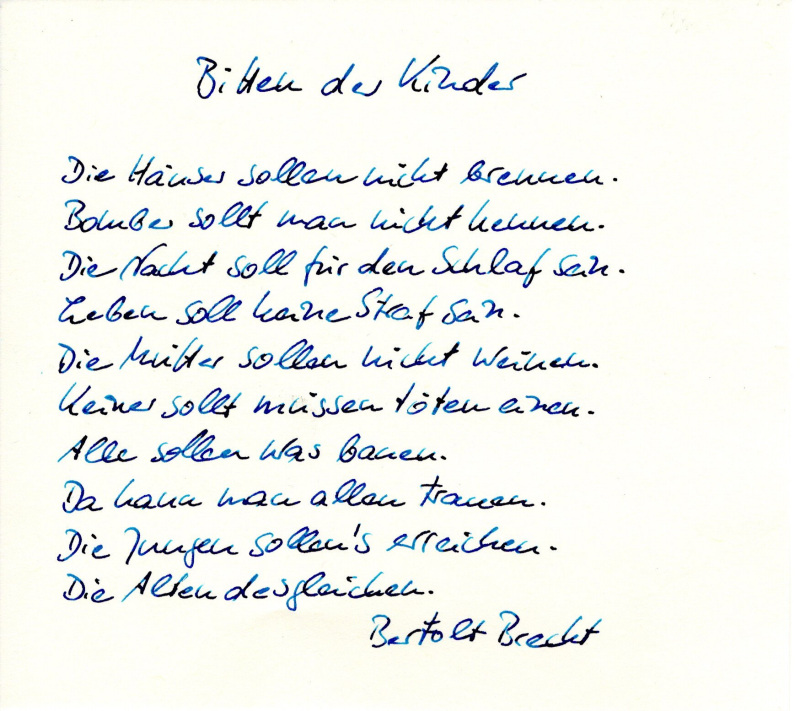 Bitten der Kinder
Die Häuser sollen nicht brennen.
Bomber sollt man nicht kennen.
Die Nacht soll für den Schlaf sein.
Leben soll keine Straf sein.
Die Mütter sollen nicht weinen.
Keiner sollt müssen töten einen.
Alle sollen was bauen.
Da kann man allen trauen.
Die Jungen sollen's erreichen.
Die Alten desgleichen.
Bertolt Brecht